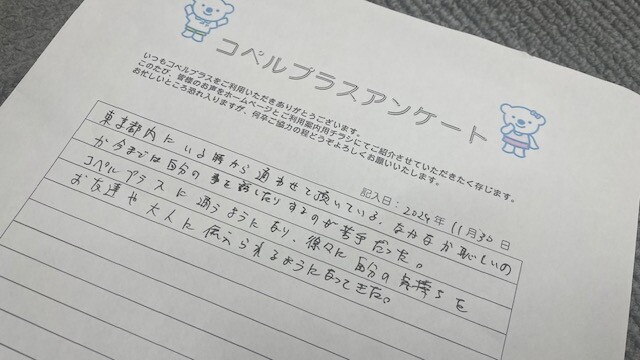 コペルプラスアンケート
いつもコペルプラスをご利用いただきありがとうございます。
このたび、皆様のお声をホームページとご利用案内用チラシにてご紹介させていただきたく存じます。
お忙しいところ恐れ入りますが、何卒ご協力の程どうぞよろしくお願いいたします。
記入日：2024年 11月30日
東京都内にいる時から通わせて頂いている。なかなか恥しいの
か今までは自分の事を話したりするのが苦手だった。
コペルプラスに通うようになり、徐々に自分の気持ちを
お友達や大人に伝えられるようになってきた。